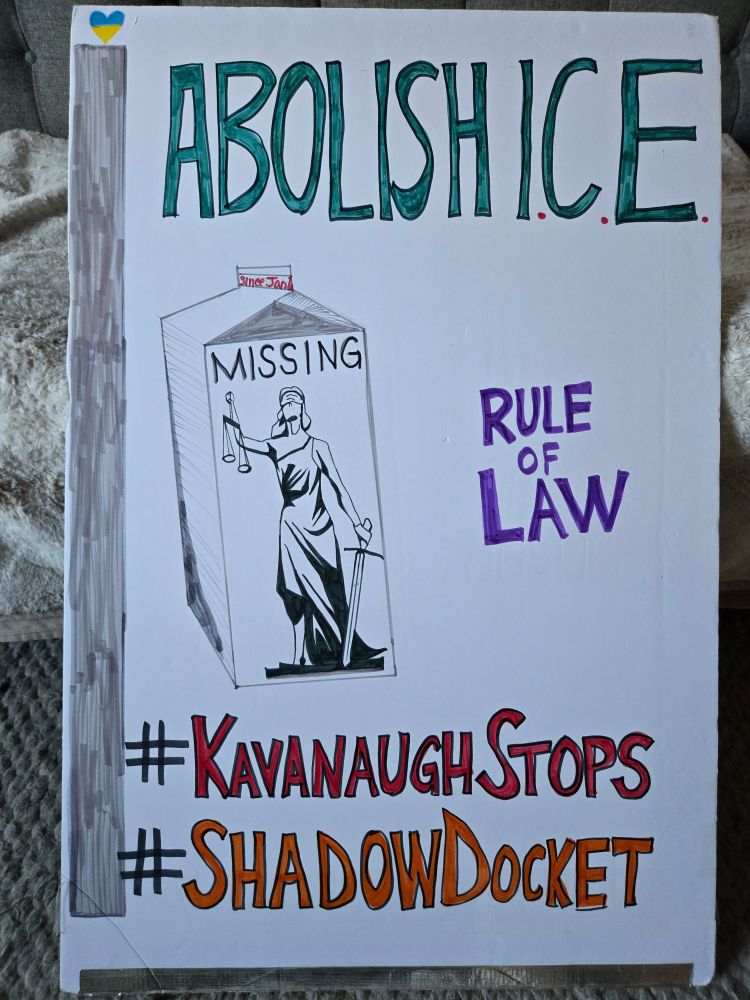 ABOLISH I.C.E.
since Jan
MISSING
RULE
OF
LAW
#KAVANAUGHSTOPS
#SHADOWDOCKET